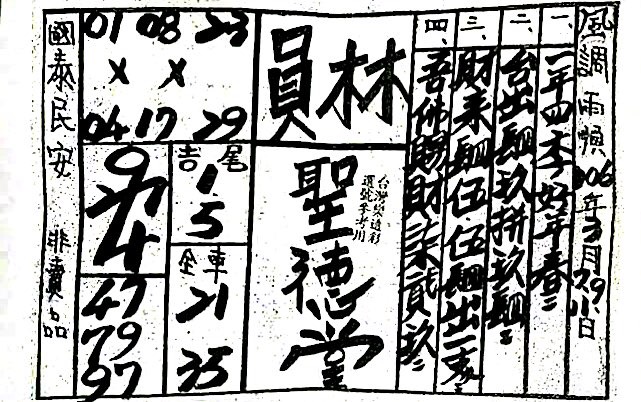 風調雨順 106年3月29、31日
一、一年四季好年春
二、台出肆玖拼玖肆
三、財來肆伍伍肆出一支
四、吾佛賜財柒貳玖
員林
聖德堂
台灣樂透彩
選號參考用
01 08 23
× ×
04 17 29
吉尾
1
5
全車
21
35
9
4
47
79
97
國泰民安 非賣品